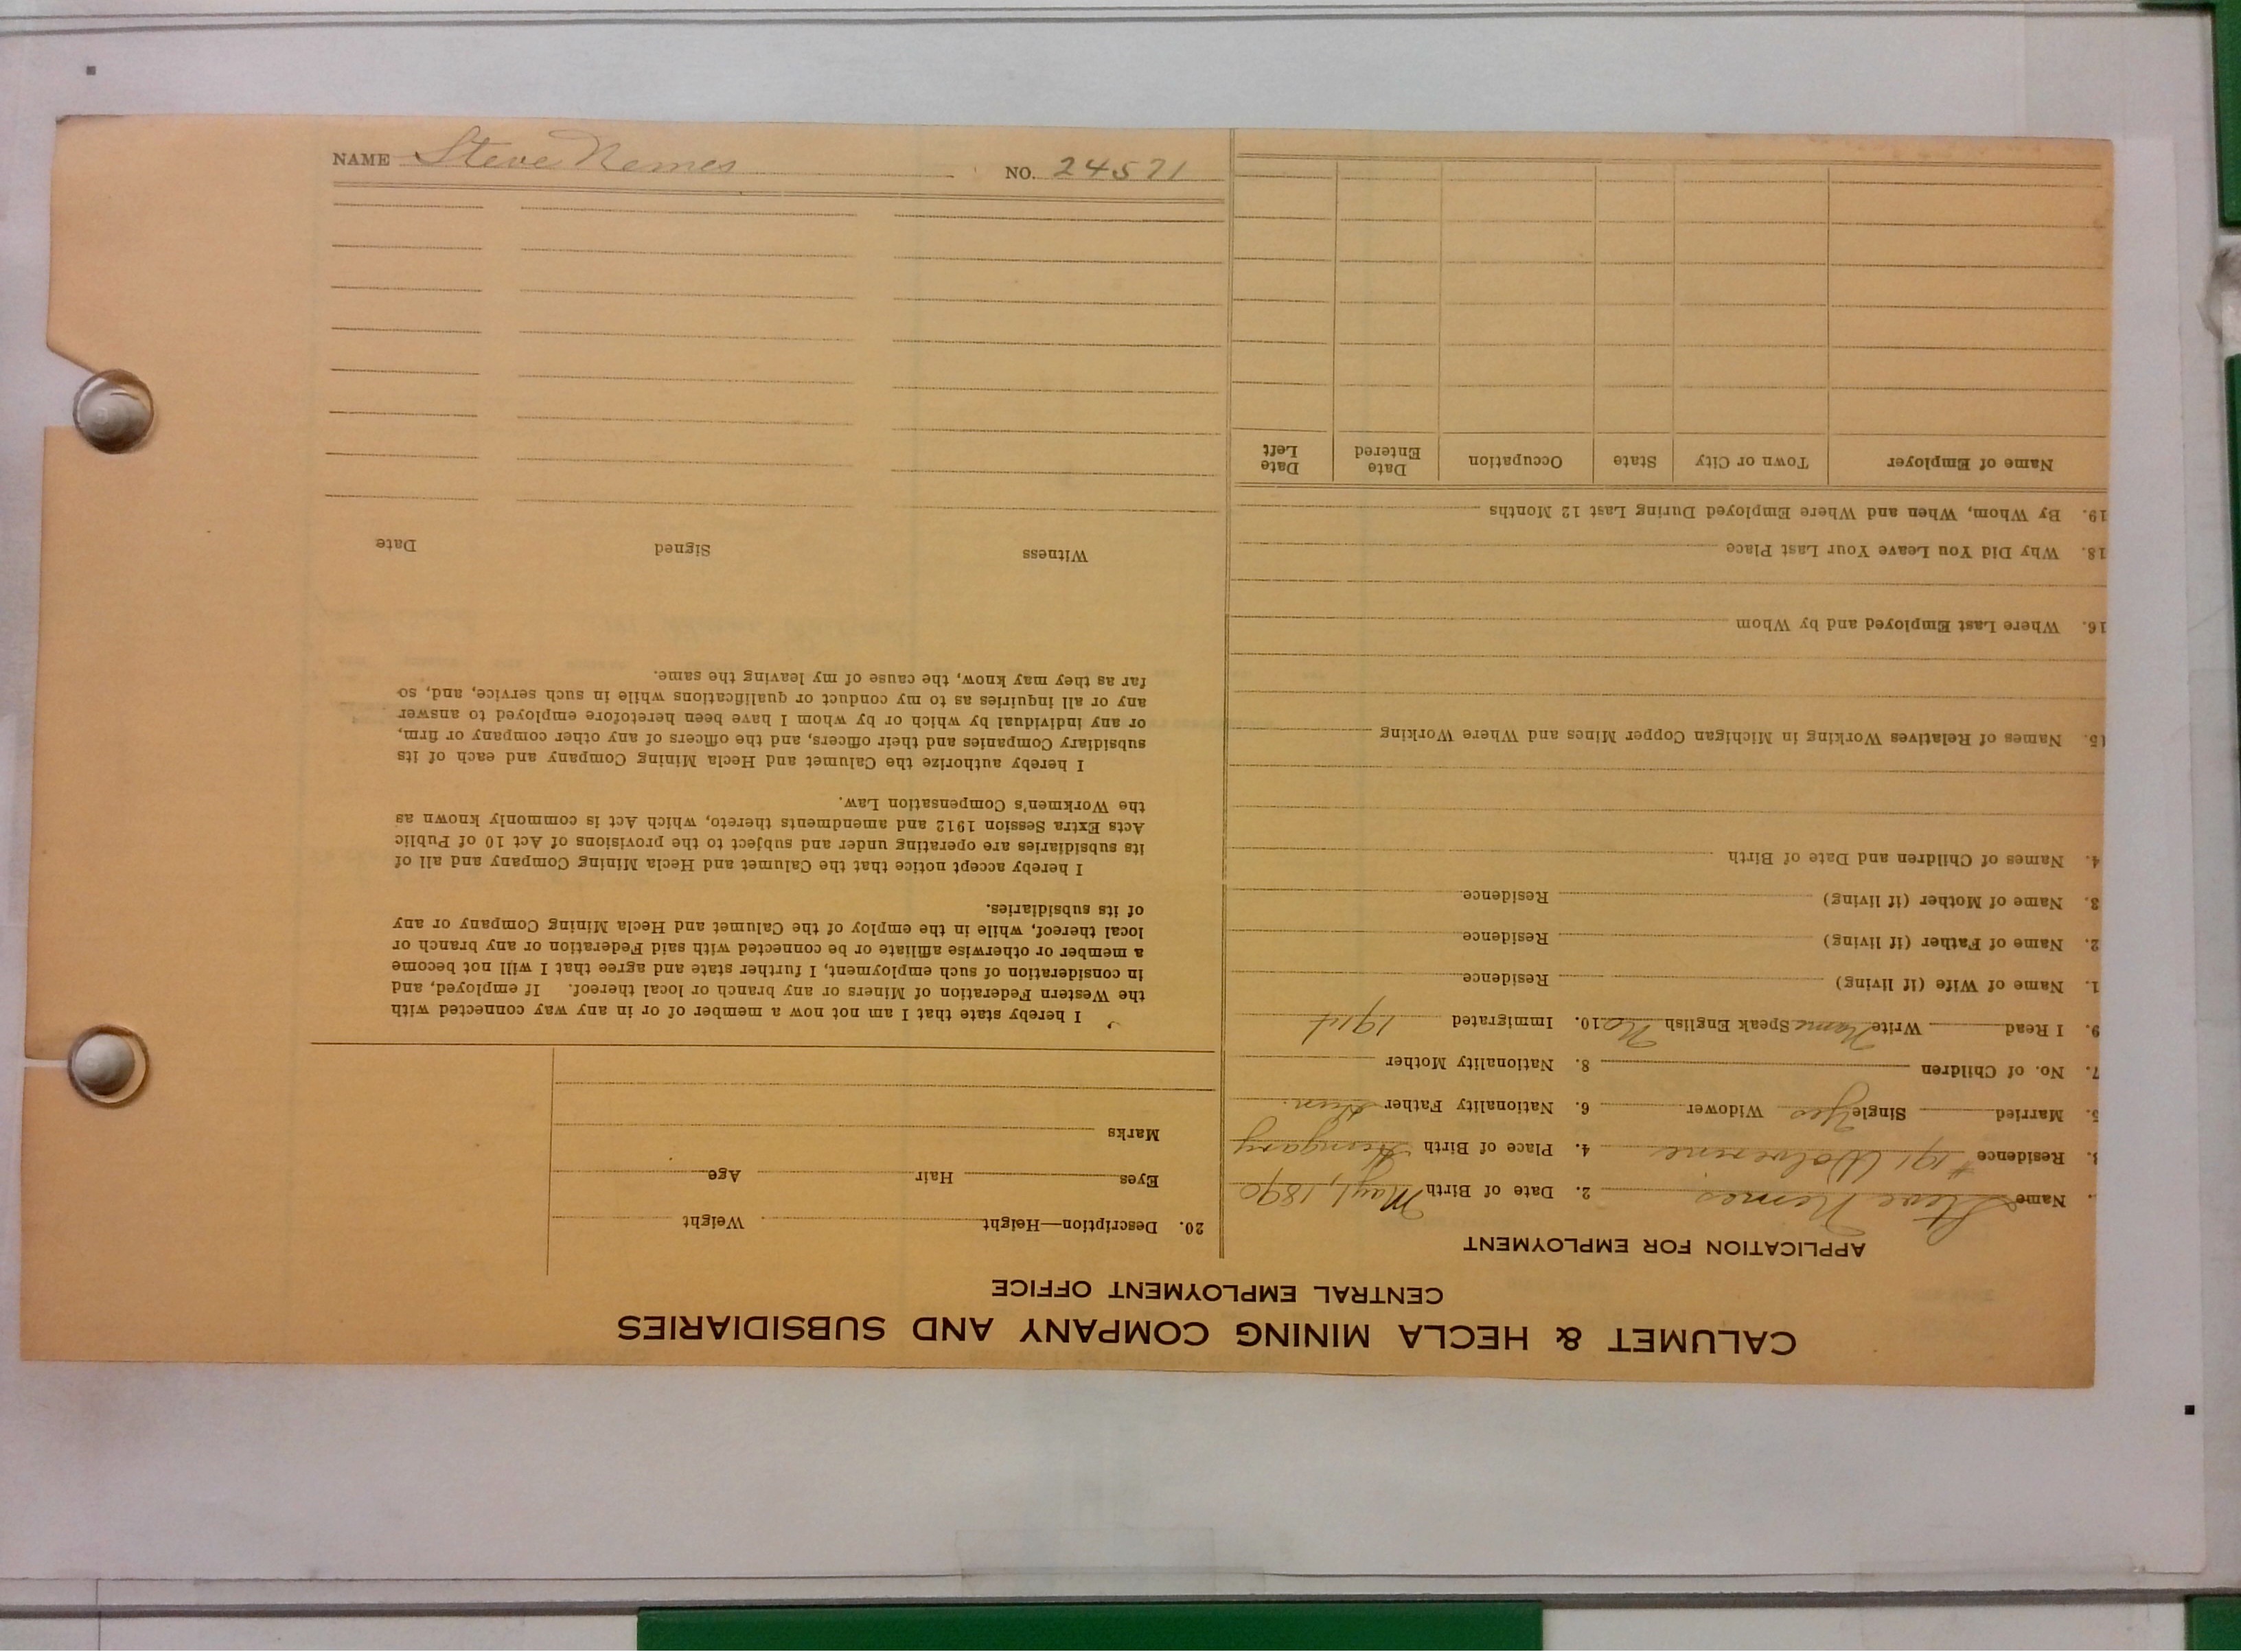 NAME Steve Nemes NO. 24571
CALUMET & HECLA MINING COMPANY AND SUBSIDIARIES
CENTRAL EMPLOYMENT OFFICE
APPLICATION FOR EMPLOYMENT
. Name Steve Nemes 2. Date of Birth May 1, 1890
3. Residence #191 Wolverine 4. Place of Birth Hungary
5. Married Single Yes Widower 6. Nationality Father Hun.
7. No. of Children 8. Nationality Mother
9. I Read Write Name Speak English No 10. Immigrated 1914
1. Name of Wife (if living) Residence
2. Name of Father (if living) Residence
3. Name of Mother (if living) Residence
4. Names of Children and Date of Birth
15. Names of Relatives Working in Michigan Copper Mines and Where Working
16. Where Last Employed and by Whom
18. Why Did You Leave Your Last Place
19. By Whom, When and Where Employed During Last 12 Months
Name of Employer Town or City State Occupation Date Entered Date Left
20. Description—Height Weight
Eyes Hair Age
Marks
I hereby state that I am not now a member of or in any way connected with
the Western Federation of Miners or any branch or local thereof. If employed, and
in consideration of such employment, I further state and agree that I will not become
a member or otherwise affiliate or be connected with said Federation or any branch or
local thereof, while in the employ of the Calumet and Hecla Mining Company or any
of its subsidiaries.
I hereby accept notice that the Calumet and Hecla Mining Company and all of
its subsidiaries are operating under and subject to the provisions of Act 10 of Public
Acts Extra Session 1912 and amendments thereto, which Act is commonly known as
the Workmen's Compensation Law.
I hereby authorize the Calumet and Hecla Mining Company and each of its
subsidiary Companies and their officers, and the officers of any other company or firm,
or any individual by which or by whom I have been heretofore employed to answer
any or all inquiries as to my conduct or qualifications while in such service, and, so
far as they may know, the cause of my leaving the same.
Witness Signed Date